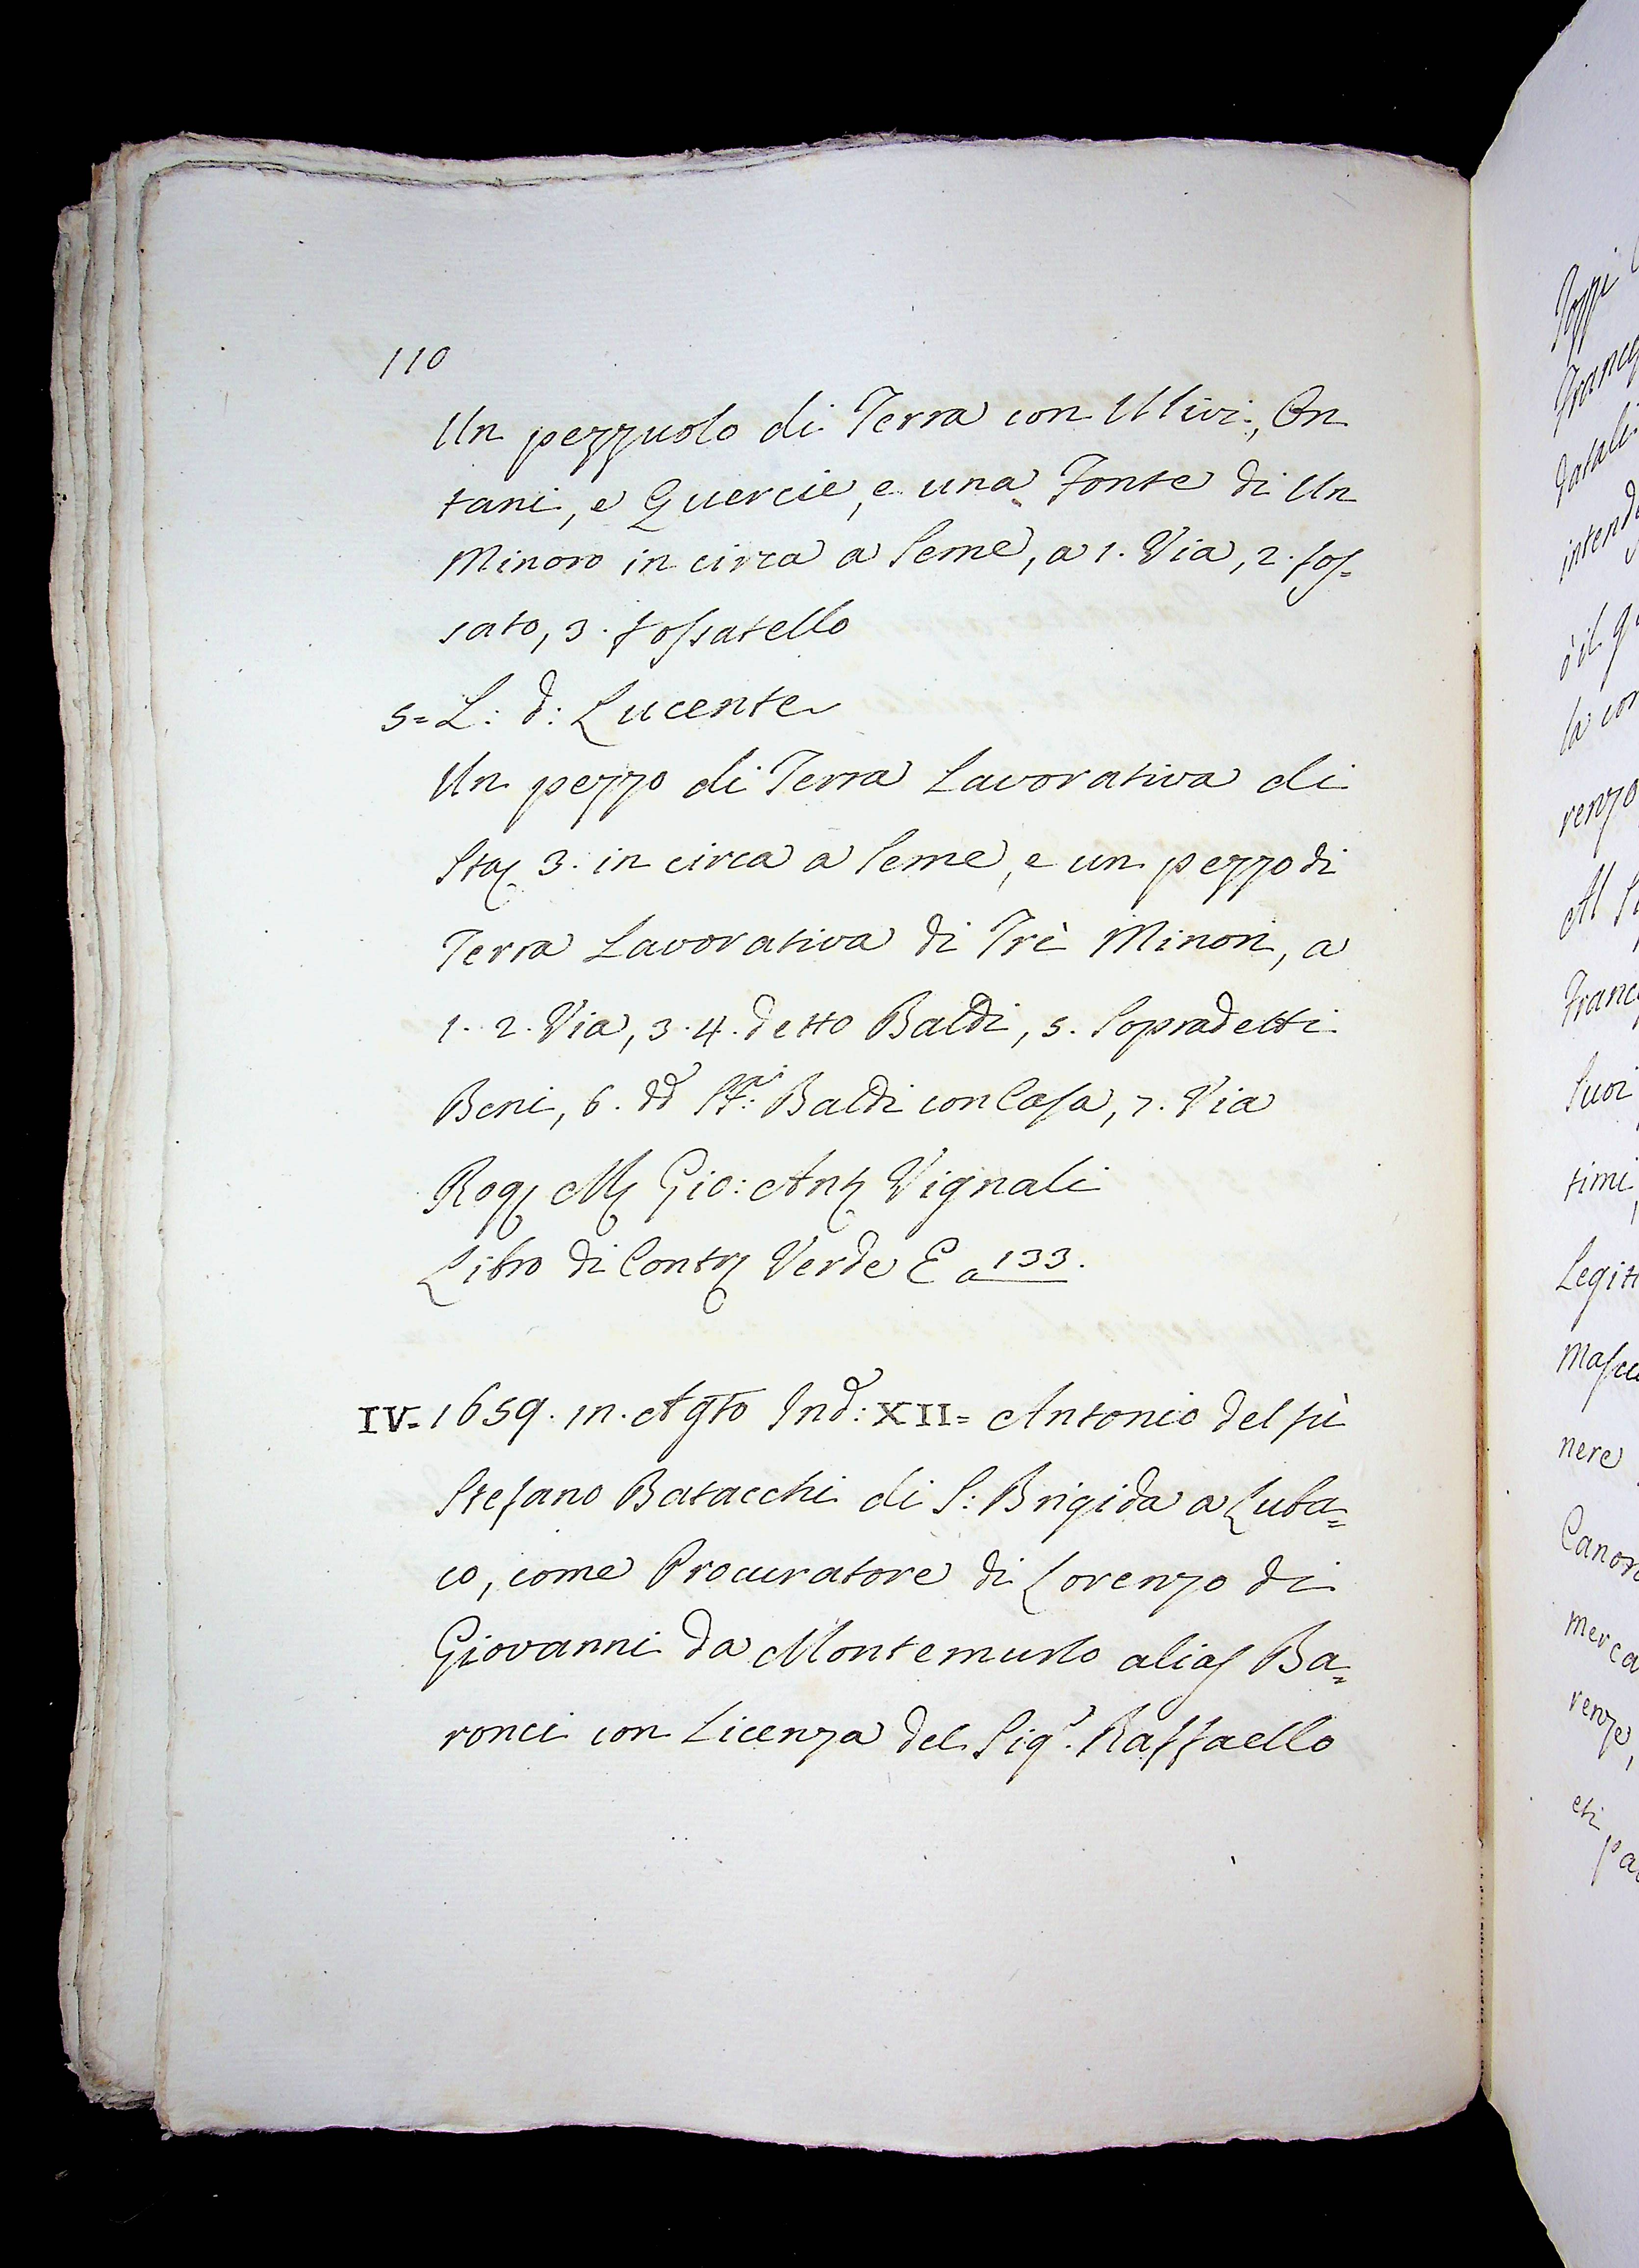 110
Un pezzuolo di Terra con Ulivi, On
tani, e Quercie, e una Fonte di Un
Minoro in circa a Seme, a 1. Via, 2. fos=
sato, 3. fossatello
5= L: d: Lucente
Un pezzo di Terra Lavorativa di
Sta 3. in circa a Seme, e un pezzo di
Terra Lavorativa di Trè Minori, a
1. 2. Via, 3. 4. detto Baldi, 5. Sopradetti
Beni, 6. dd Baldi con Casa, 7. Via
Rog Gio: Ant Vignali
Libro di Contr Verde E a 133.
IV= 1659. 11. Agto Ind: XII= Antonio del fù
Stefano Batacchi di S: Brigida a Luba=
co, come Procuratore di Lorenzo di
Giovanni da Montemurlo alias Ba=
ronci con Licenza del Sigr. Raffaello
Franc
datali
intend
è il
la con
renzo
Al
Franc
Suoi
timi,
Legit
Mascu
nere
Canon
merca
renze,
eti